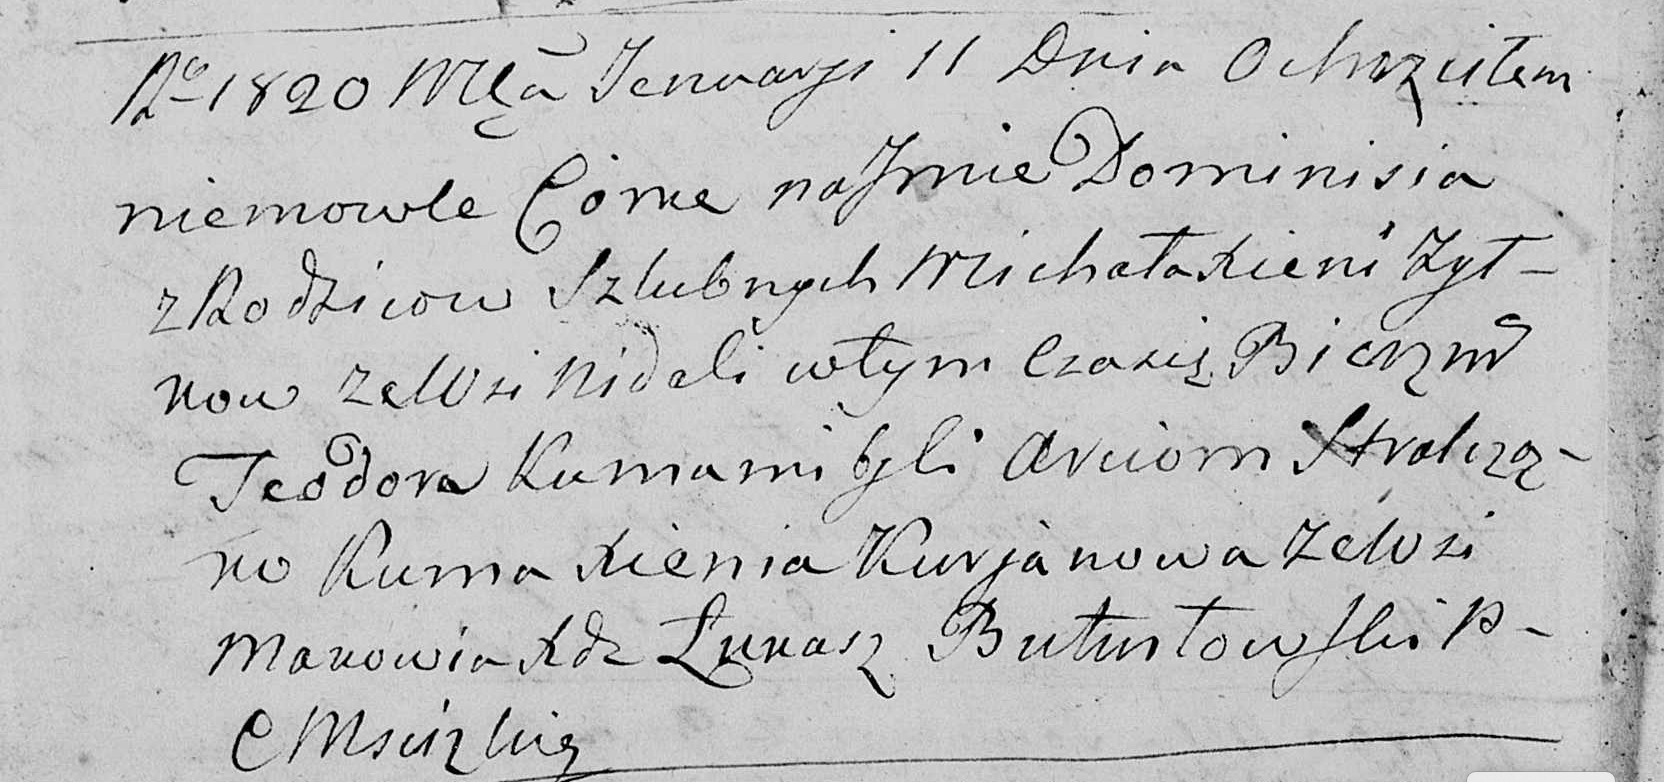 Ro 1820 Mca Jenuarji 11 Dnia Ochrzciłem
niemowle Córke na Jmie Dominisia
z Rodzicow Szlubnych Michała Xieni Żył-
kow ze Wsi Nidali wtym Czasię
Teodora Kumami byli Arciom Stralczą-
ko Kuma Xienia Kurjanowa ze Wsi
Makowia Xdz Łukasz Butustowski P-
C Mscizkię